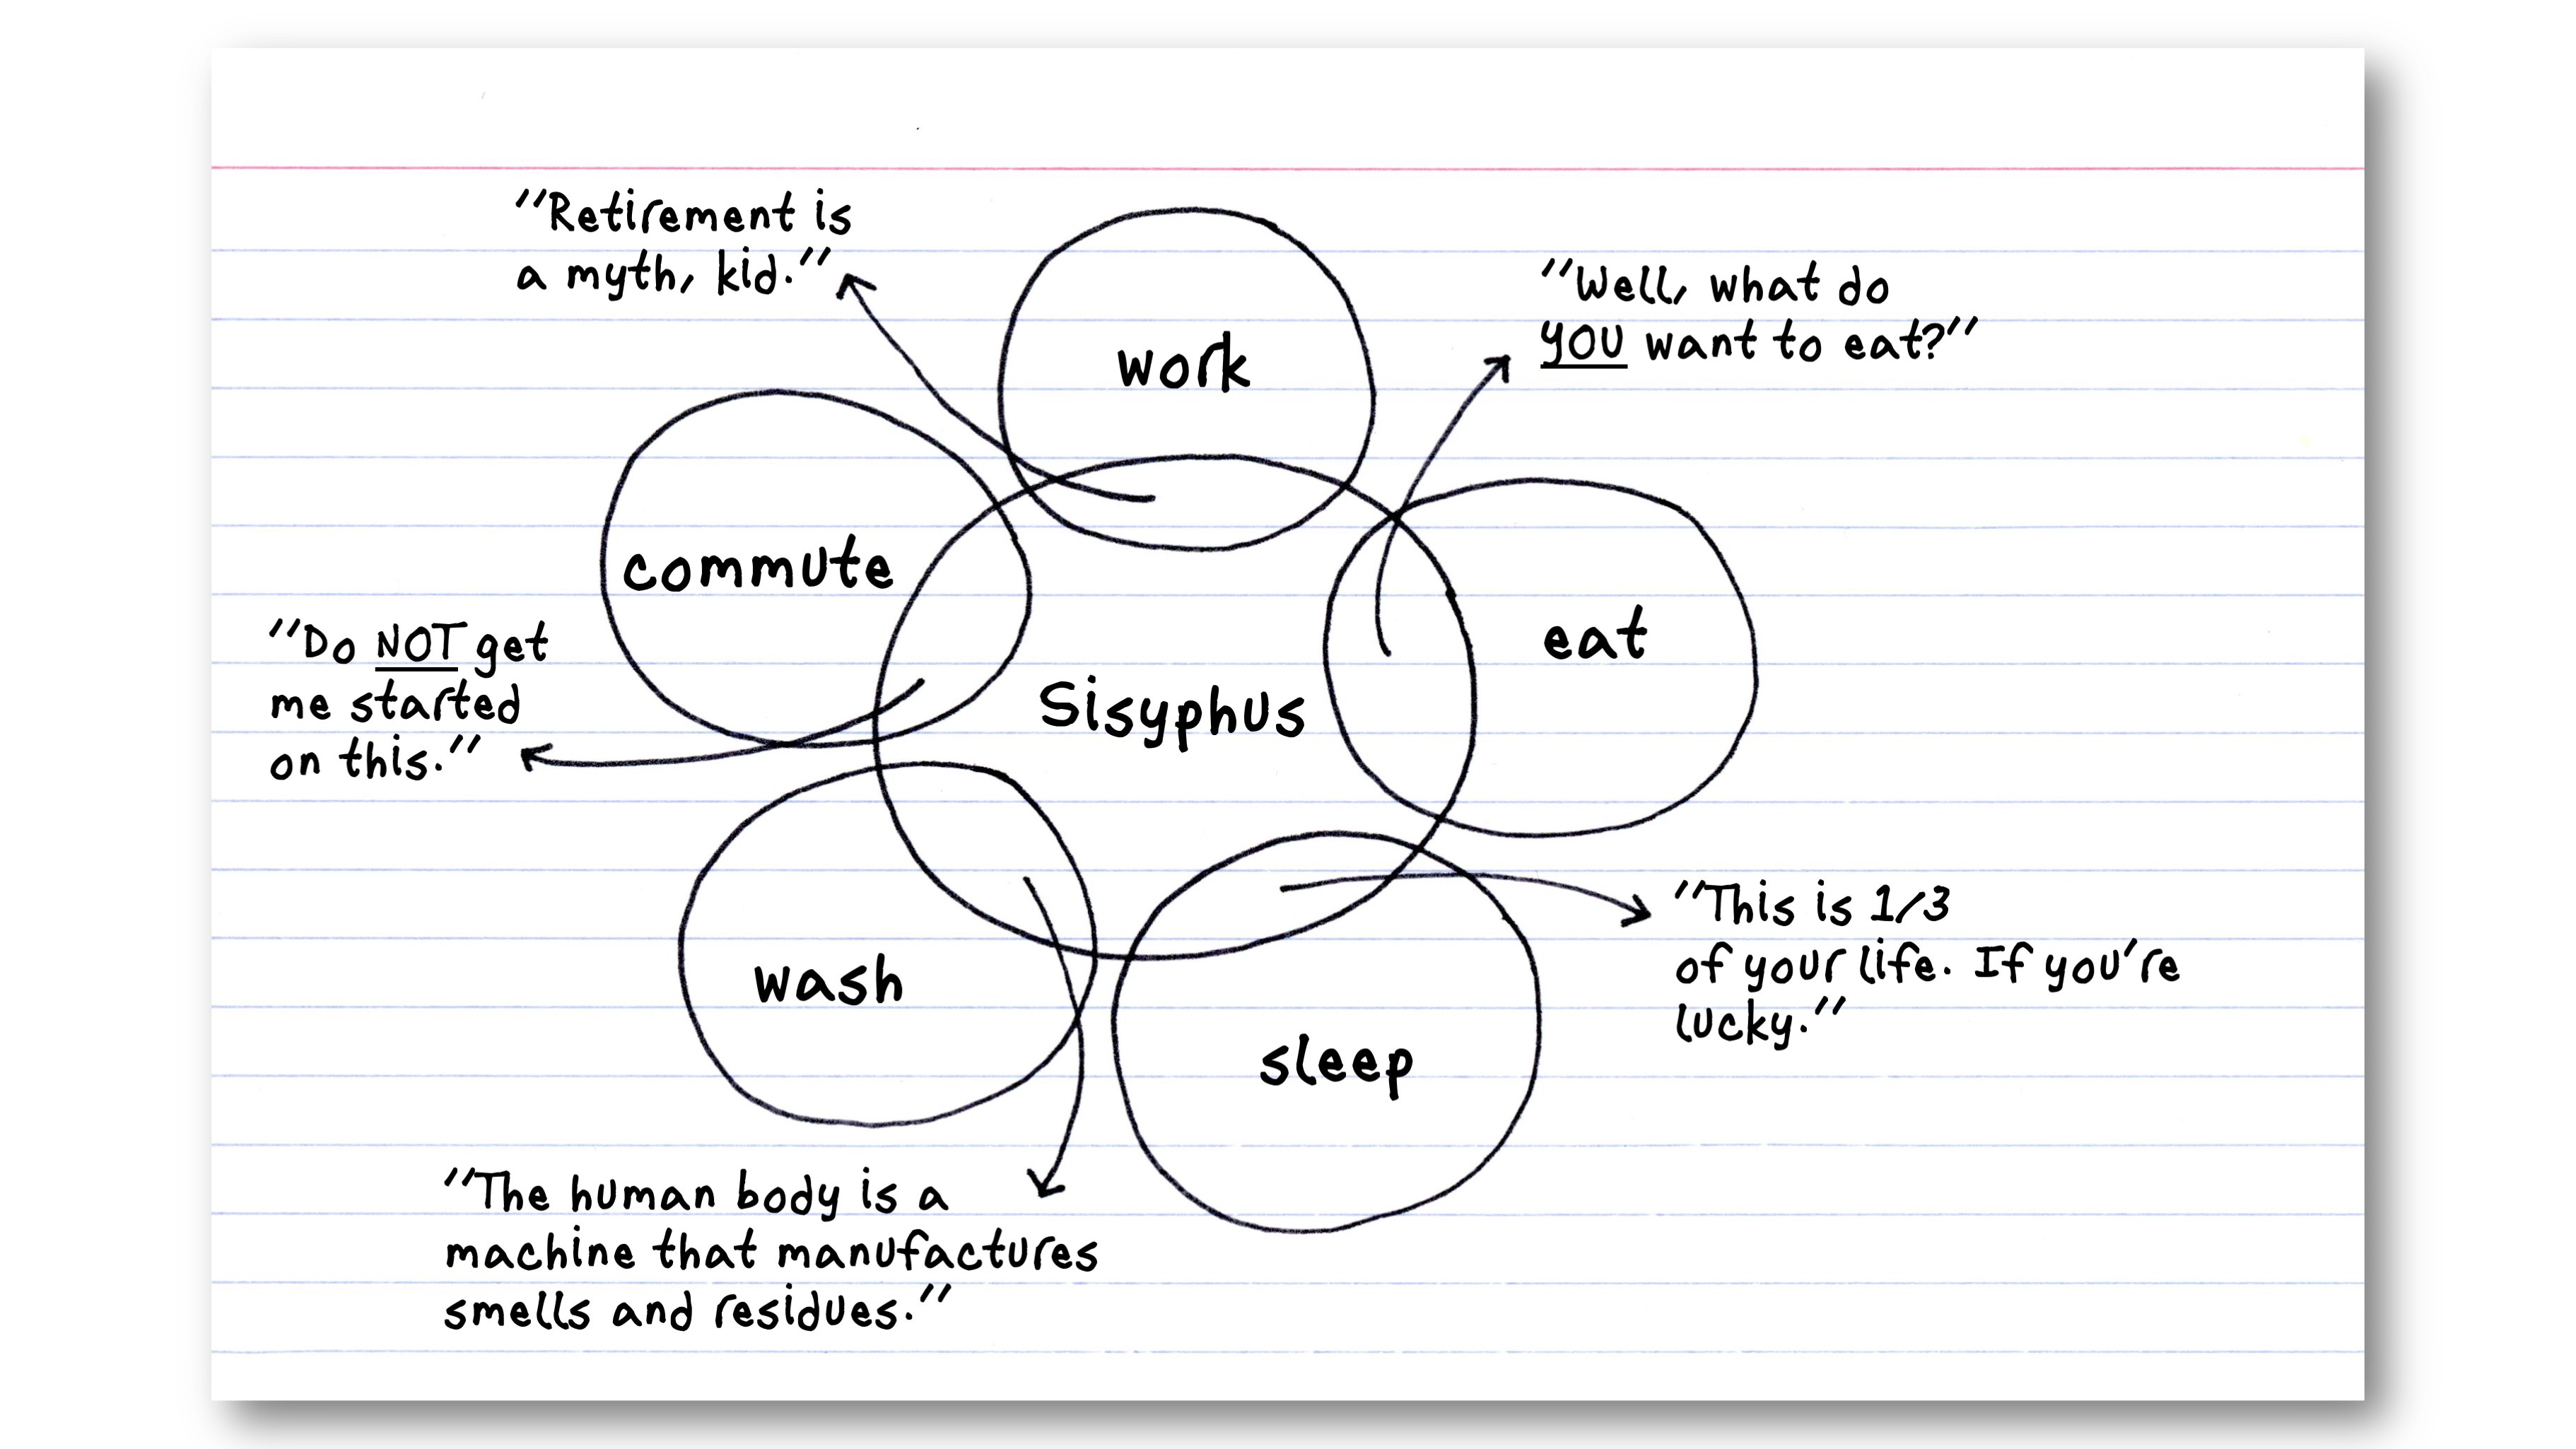 "Retirement is
a myth, kid."
work
"Well, what do
YOU want to eat?"
commute
eat
"Do NOT get
me started
on this."
Sisyphus
"This is 1/3
of your life. If you're
lucky."
wash
sleep
"The human body is a
machine that manufactures
smells and residues."